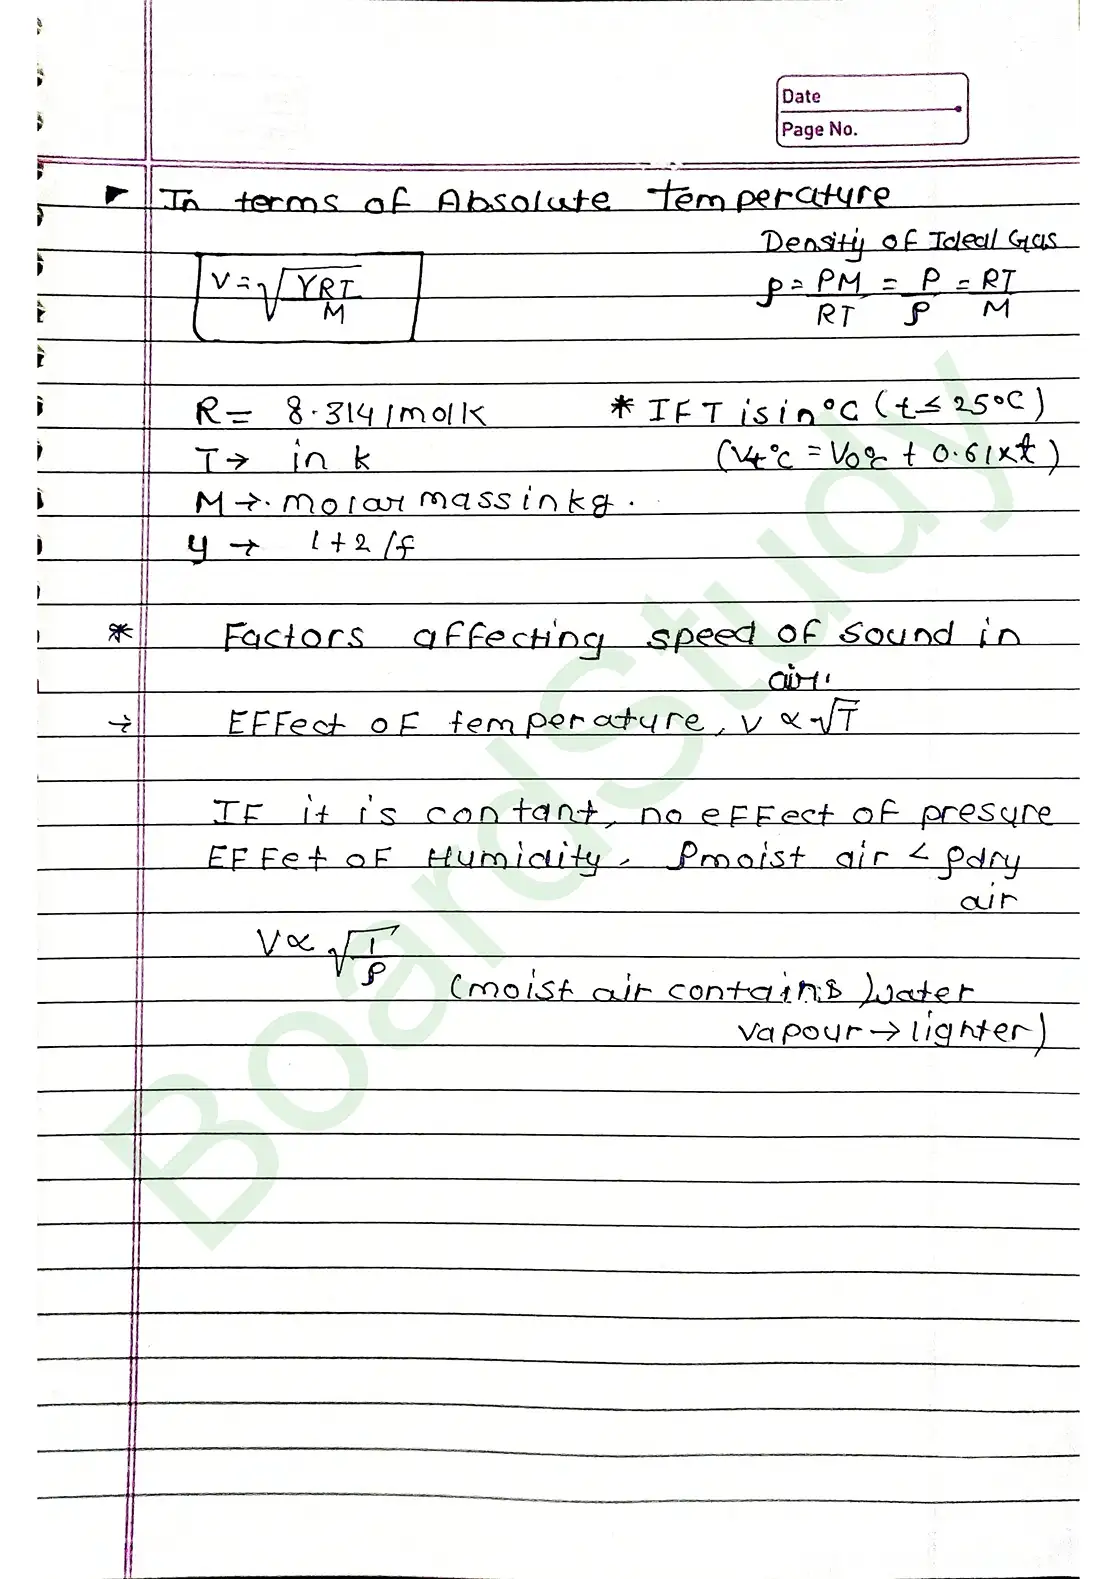 Date
Page No.
▸ In terms of Absolute Temperature
Density of Ideal Gas
V = √(γRT/M)
ρ = PM/RT = P/ρ = RT/M
R = 8.314 / mol k
* IF T is in °C (t ≤ 25°C)
T → in k
(Vt°c = V0°c + 0.61×t)
M →. molar mass in kg.
y → 1+2/f
* Factors affecting speed of sound in
air.
→ EFFect oF temperature, v ∝ √T
IF it is contant, no eFFect oF presure
EFFet oF Humidity, ρmoist air < ρdry
air
V ∝ √(1/ρ)
(moist air contains water
vapour → lighter)
BoardStudy